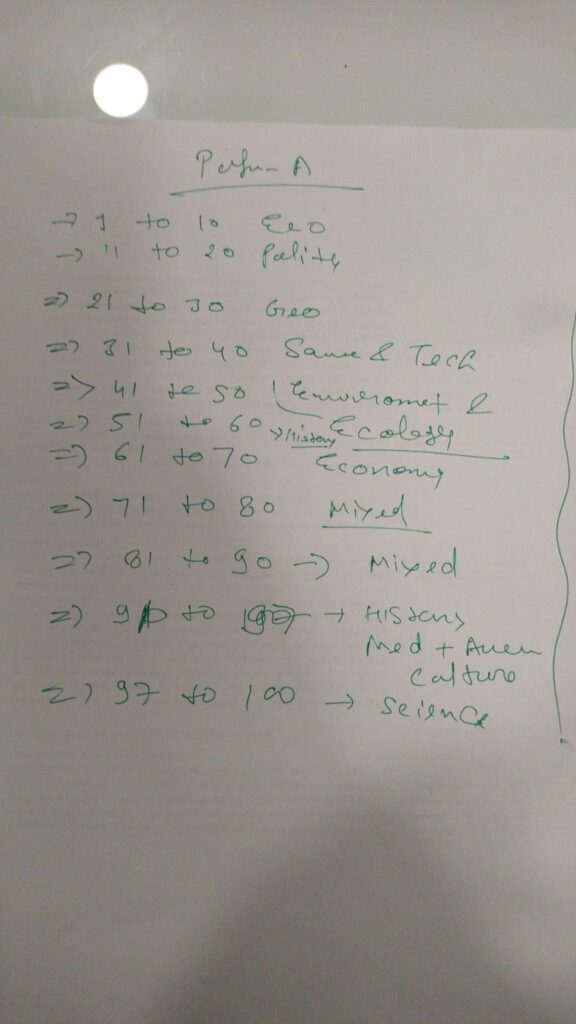 - A
→ 1 to 10 Eco
→ 11 to 20 Polity
⇒ 21 to 30 Geo
⇒ 31 to 40 & Tech
⇒ 41 to 50 Enviromet &
⇒ 51 to 60 → History Ecology
⇒ 61 to 70 Economy
⇒ 71 to 80 Mixed
⇒ 81 to 90 → Mixed
⇒ 91 to → History
Med +
Culture
⇒ 97 to 100 → Science